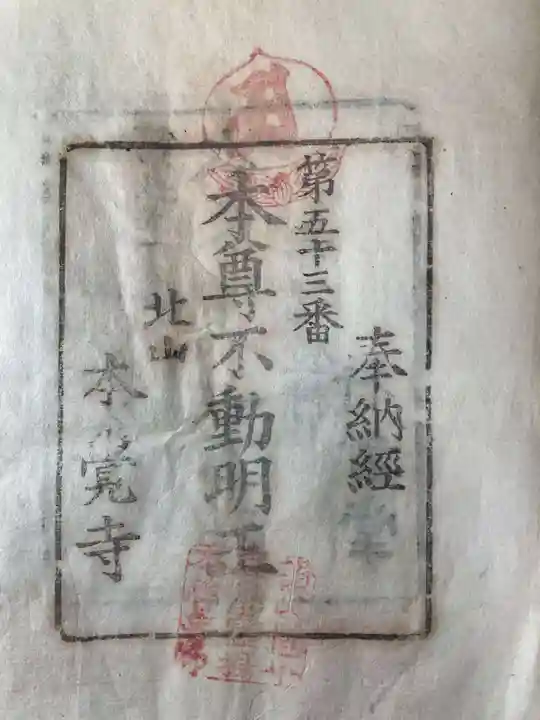 奉納經
第五十三番
本尊不動明王
北山
本覚寺